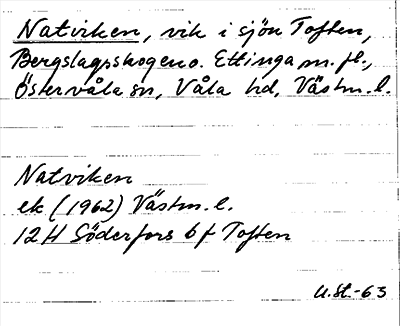 Natviken, vik i sjön Toften,
Bergslagsskogen o. Ettinga m. fl.,
Östervåla sn, Våla hd, Västm. l.
Natviken
ek (1962) Västm. l.
12 H Söderfors 6 f Toften
U.St.-63